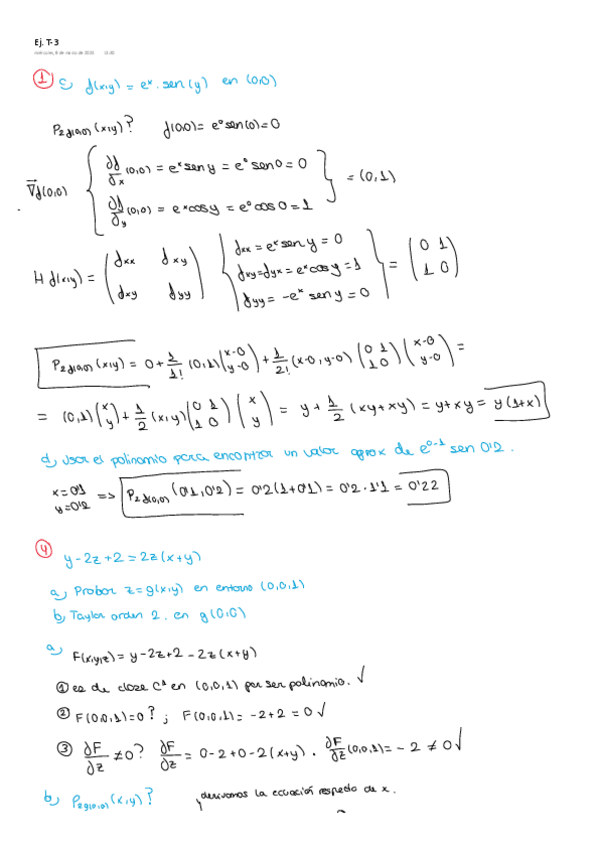 Ej. T-3
miércoles, 6 de marzo de 2024
① c) f(x,y) = eˣ · sen(y) en (0,0)
P₂,f(0,0) (x,y)? f(0,0) = e⁰ sen(0) = 0
∇f(0,0) { ∂f/∂x (0,0) = eˣ sen y = e⁰ sen 0 = 0
∂f/∂y (0,0) = eˣ cos y = e⁰ cos 0 = 1 } = (0,1)
H f(x,y) = ( fxx fxy
fxy fyy ) { fxx = eˣ sen y = 0
fxy = fyx = eˣ cos y = 1
fyy = -eˣ sen y = 0 } = ( 0 1
1 0 )
P₂,f(0,0) (x,y) = 0 + 1/1! (0,1) (x-0
y-0) + 1/2! (x-0, y-0) (0 1
1 0) (x-0
y-0) =
= (0,1) (x
y) + 1/2 (x,y) (0 1
1 0) (x
y) = y + 1/2 (xy+xy) = y+xy = y(1+x)
d) Usar el polinomio para encontrar un valor aprox de e^0'1 sen 0'2.
x = 0'1
y = 0'2 => P₂,f(0,0) (0'1, 0'2) = 0'2(1+0'1) = 0'2 · 1'1 = 0'22
④ y - 2z + 2 = 2z(x+y)
a) Probar z = g(x,y) en entorno (0,0,1)
b) Taylor orden 2. en g(0,0)
a) F(x,y,z) = y - 2z + 2 - 2z(x+y)
① es de clase C¹ en (0,0,1) por ser polinomio. ✓
② F(0,0,1) = 0? ; F(0,0,1) = -2+2 = 0 ✓
③ ∂F/∂z ≠ 0? ∂F/∂z = 0 - 2 + 0 - 2(x+y) . ∂F/∂z (0,0,1) = -2 ≠ 0 ✓
b) P₂,g(0,0) (x,y)? derivamos la ecuación respecto de x.